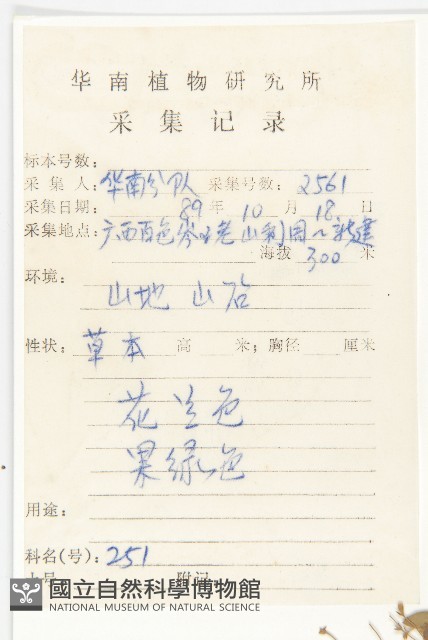 华南植物研究所
采集记录
标本号数:
采集人: 华南分队 采集号数: 2561
采集日期: 89年10月18日
采集地点: 广西百色岑王老山利周〜新建
海拔 300 米
环境:
山地 山谷
性状: 草本 高 米; 胸径 厘米
花兰色
果绿色
用途:
科名(号): 251
附记
國立自然科學博物館
NATIONAL MUSEUM OF NATURAL SCIENCE